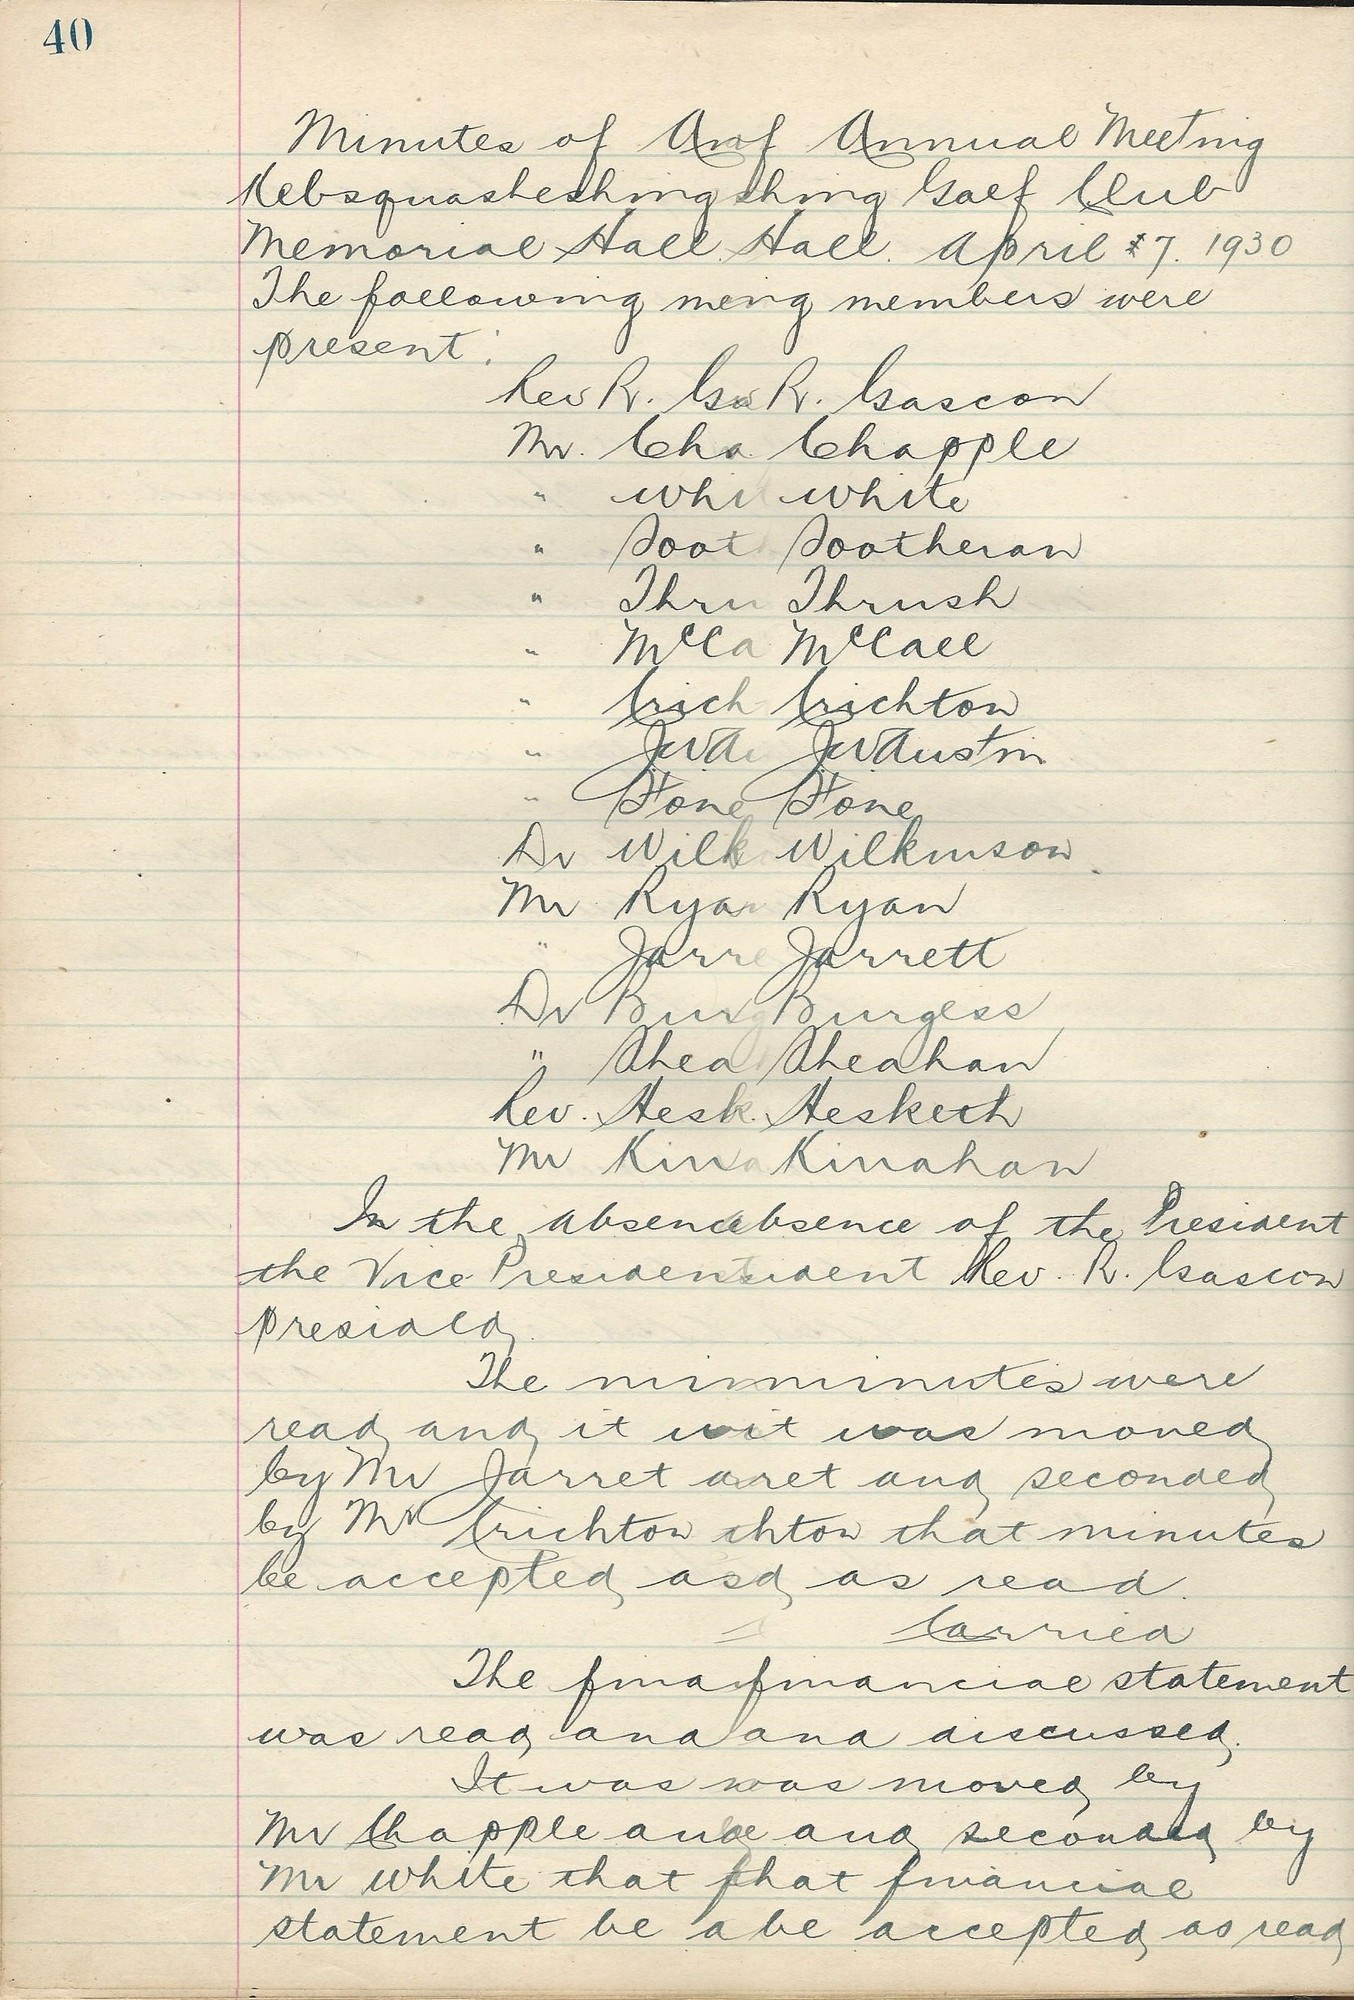 40
Minutes of An of Annual Meeting
Kebsquasheshing shing Golf Club
Memorial Hall Hall. April 7. 1930
The following meng members were
present:
Rev R. Ga R. Gascon
Mr. Cha Chapple
" Whi White
" Soot Sootheran
" Thru Thrush
" McCa McCall
" Crich Crichton
" JWA JWAustin
" Fone Fone
Dr Wilk Wilkinson
Mr Rya Ryan
" Jarre Jarrett
Dr Burg Burgess
" Shea Sheahan
Rev. Hesk Hesketh
Mr Kina Kinahan
In the absenc absence of the President
the Vice President sident Rev. R. Gascon
presided
The min minutes were
read and it w it was moved
by Mr Jarret a ret and seconded
by Mr Crichton chton that minutes
be accepted as d as read.
Carried
The fina financial statement
was read and and discussed.
It was was moved by
Mr Chapple and e and seconded by
Mr White that f hat financial
statement be a be accepted as read